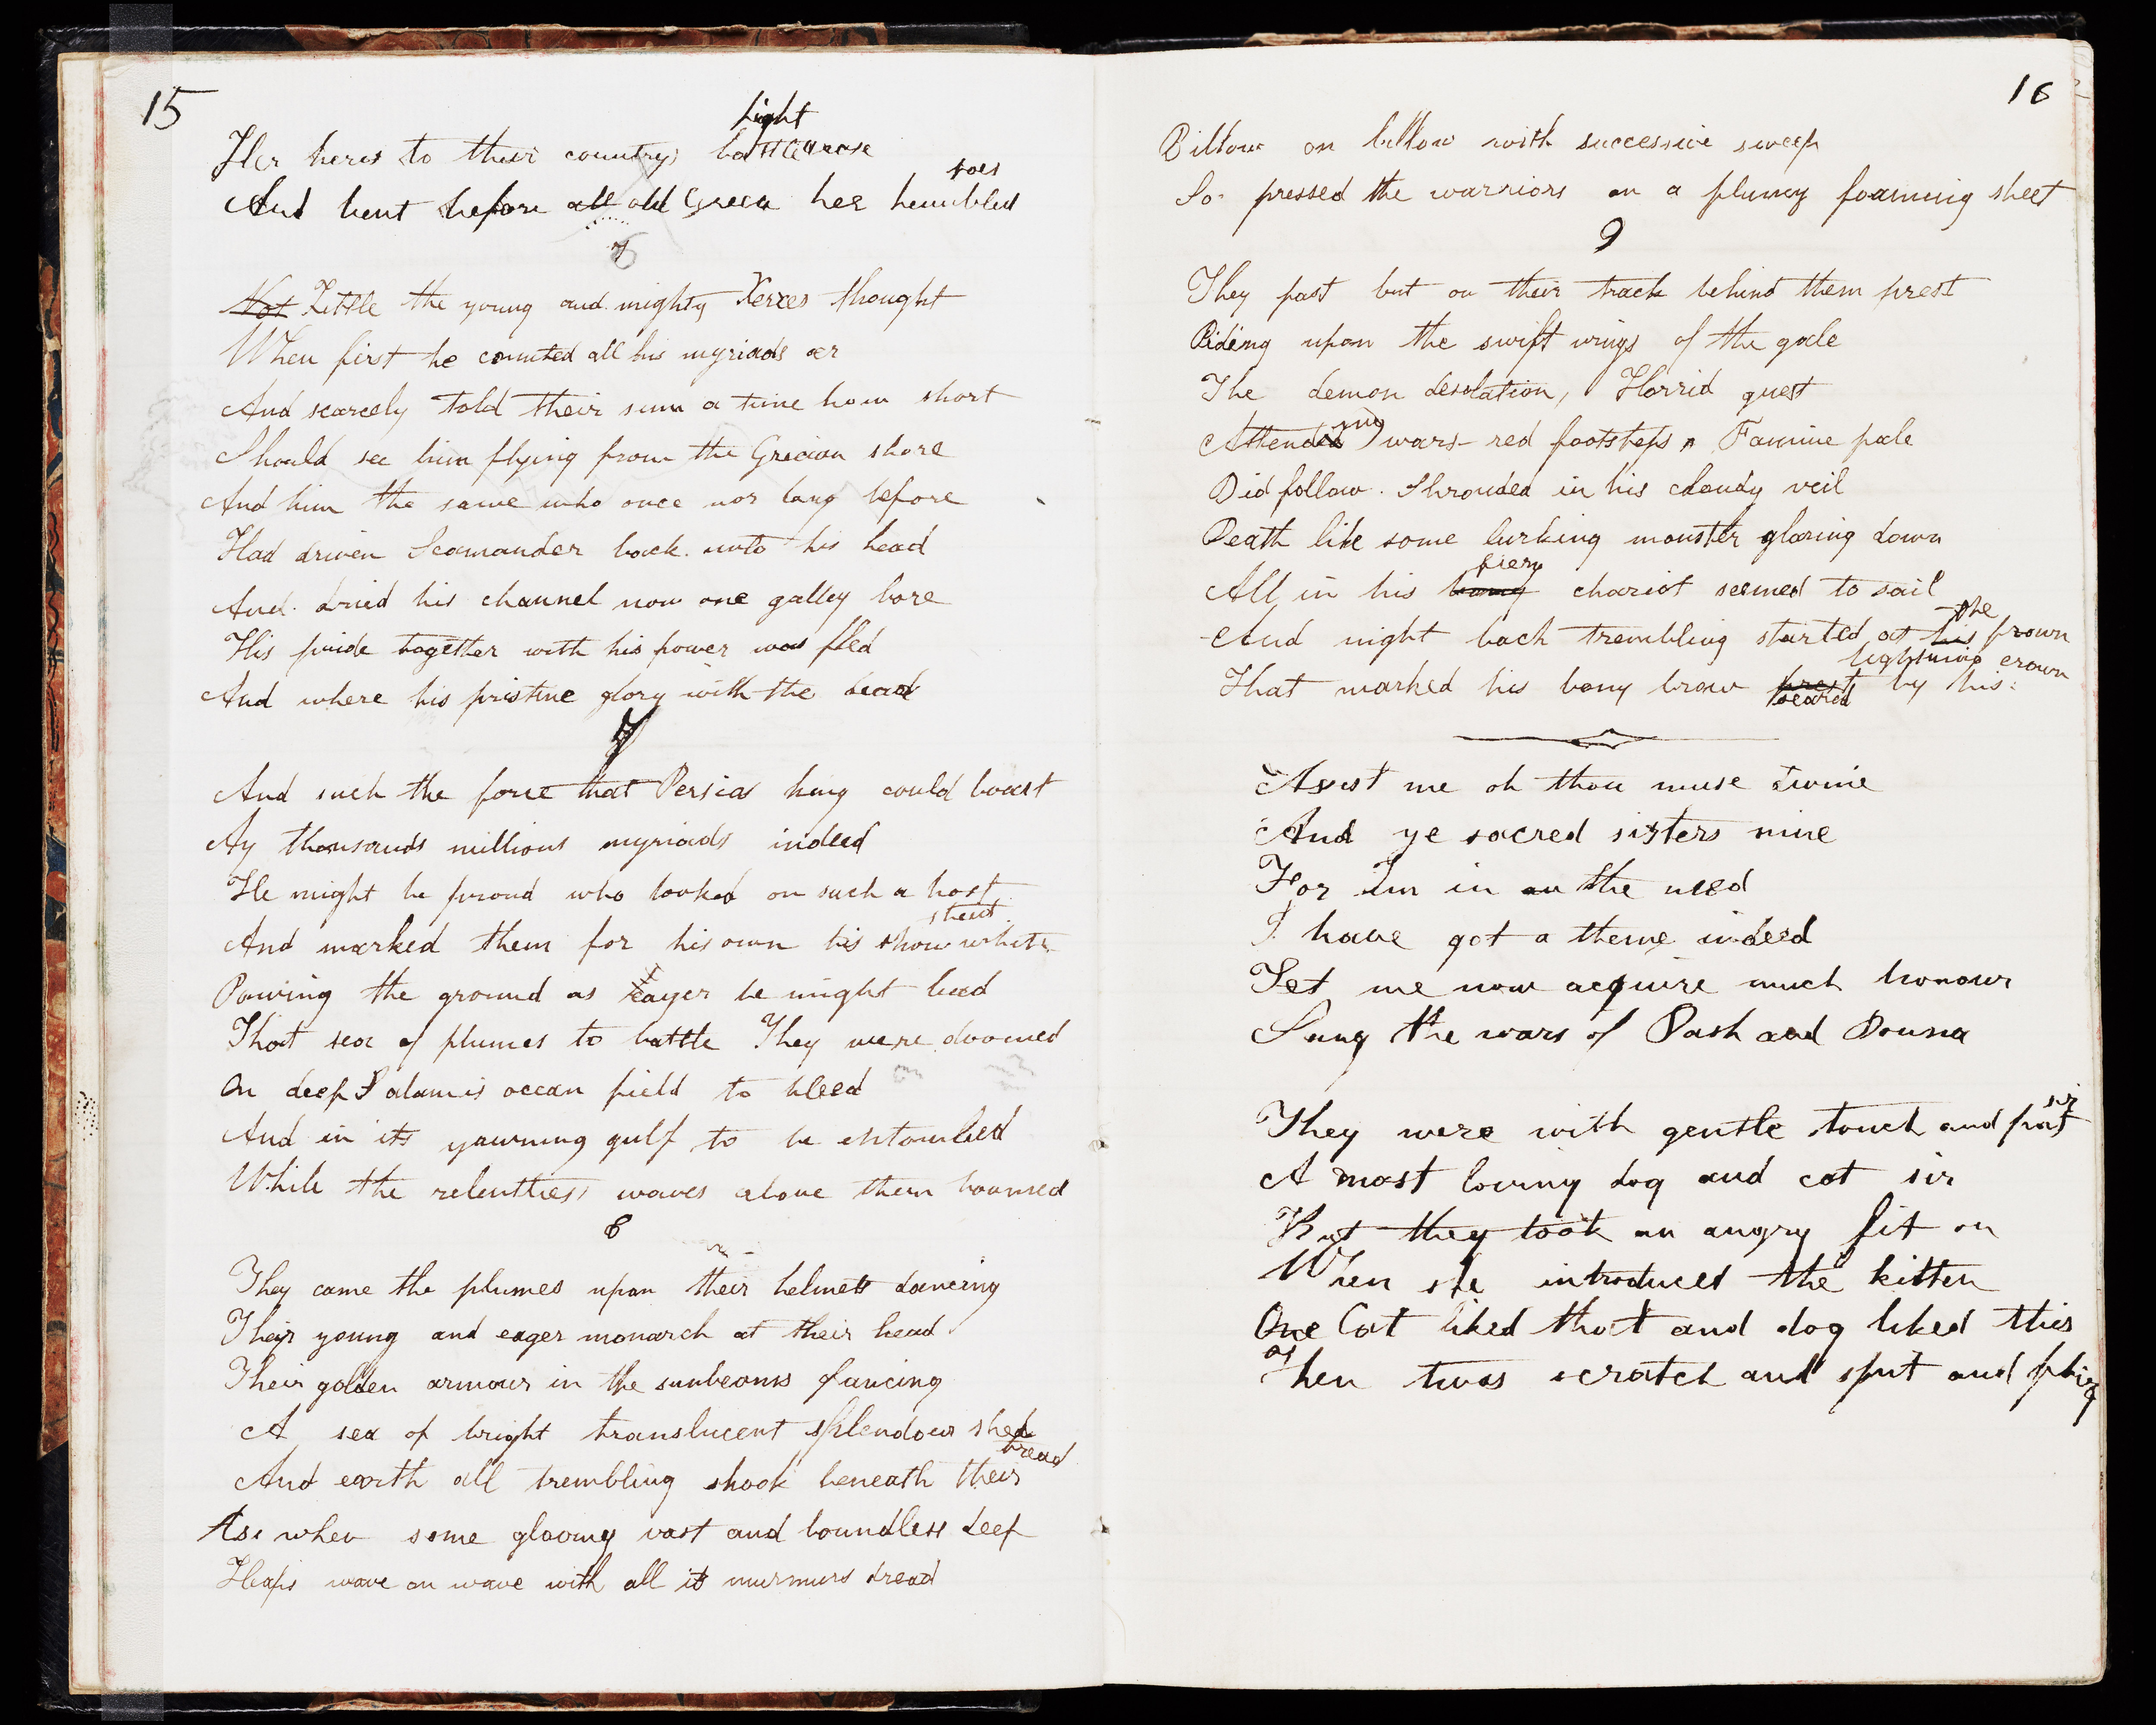 15
Her heros to their countrys battle arose
fight
And bent before all old Greece her humbled
foes
Not Little the young and mighty Xerxes thought
When first he counted all his myriads oer
And scarcely told their sum a time how short
Should see him flying from the Grecian shore
And him the same who once nor long before
Had driven Scamander back unto his head
And dried his channel now one galley bore
His pride together with his power was fled
And where his pristine glory with the dead
7
And such the force that Persias king could boast
Ay thousands millions myriads indeed
He might be proud who looked on such a host
And marked them for his own his snow white
steed
Pawing the ground as eager he might lead
That sea of plumes to battle They were doomed
On deep Salamis ocean field to bleed
And in its yawning gulf to be entombed
While the relentless waves above them boomed
8
They came the plumes upon their helmets dancing
Their young and eager monarch at their head
Their golden armour in the sunbeams glancing
A sea of bright translucent splendour shed
And earth all trembling shook beneath their
tread
As when some gloomy vast and boundless deep
Heaps wave on wave with all its murmurs dread
16
Billow on billow with successive sweep
So pressed the warriors on a plumy foaming sheet
9
They past but on their track behind them prest
Riding upon the swift wings of the gale
The demon desolation, Horrid guest
Attending wars red footsteps Famine pale
Did follow. Shrouded in his cloudy veil
Death like some lurking monster glaring down
All in his bony chariot seemed to sail
fiery
And night back trembling started at his frown
the
That marked his bony brow prest by his
seared
lightning crown
Assist me oh thou muse divine
And ye sacred sisters nine
For Im in an the need
I have got a theme indeed
Let me now acquire much honour
Sung the wars of Dash and Donna
They were with gentle touch and pat
sir
A most loving dog and cat sir
But they took an angry fit on
When she introduced the kitten
One Cat liked that and dog liked this
Then twas scratch and sput and phiz